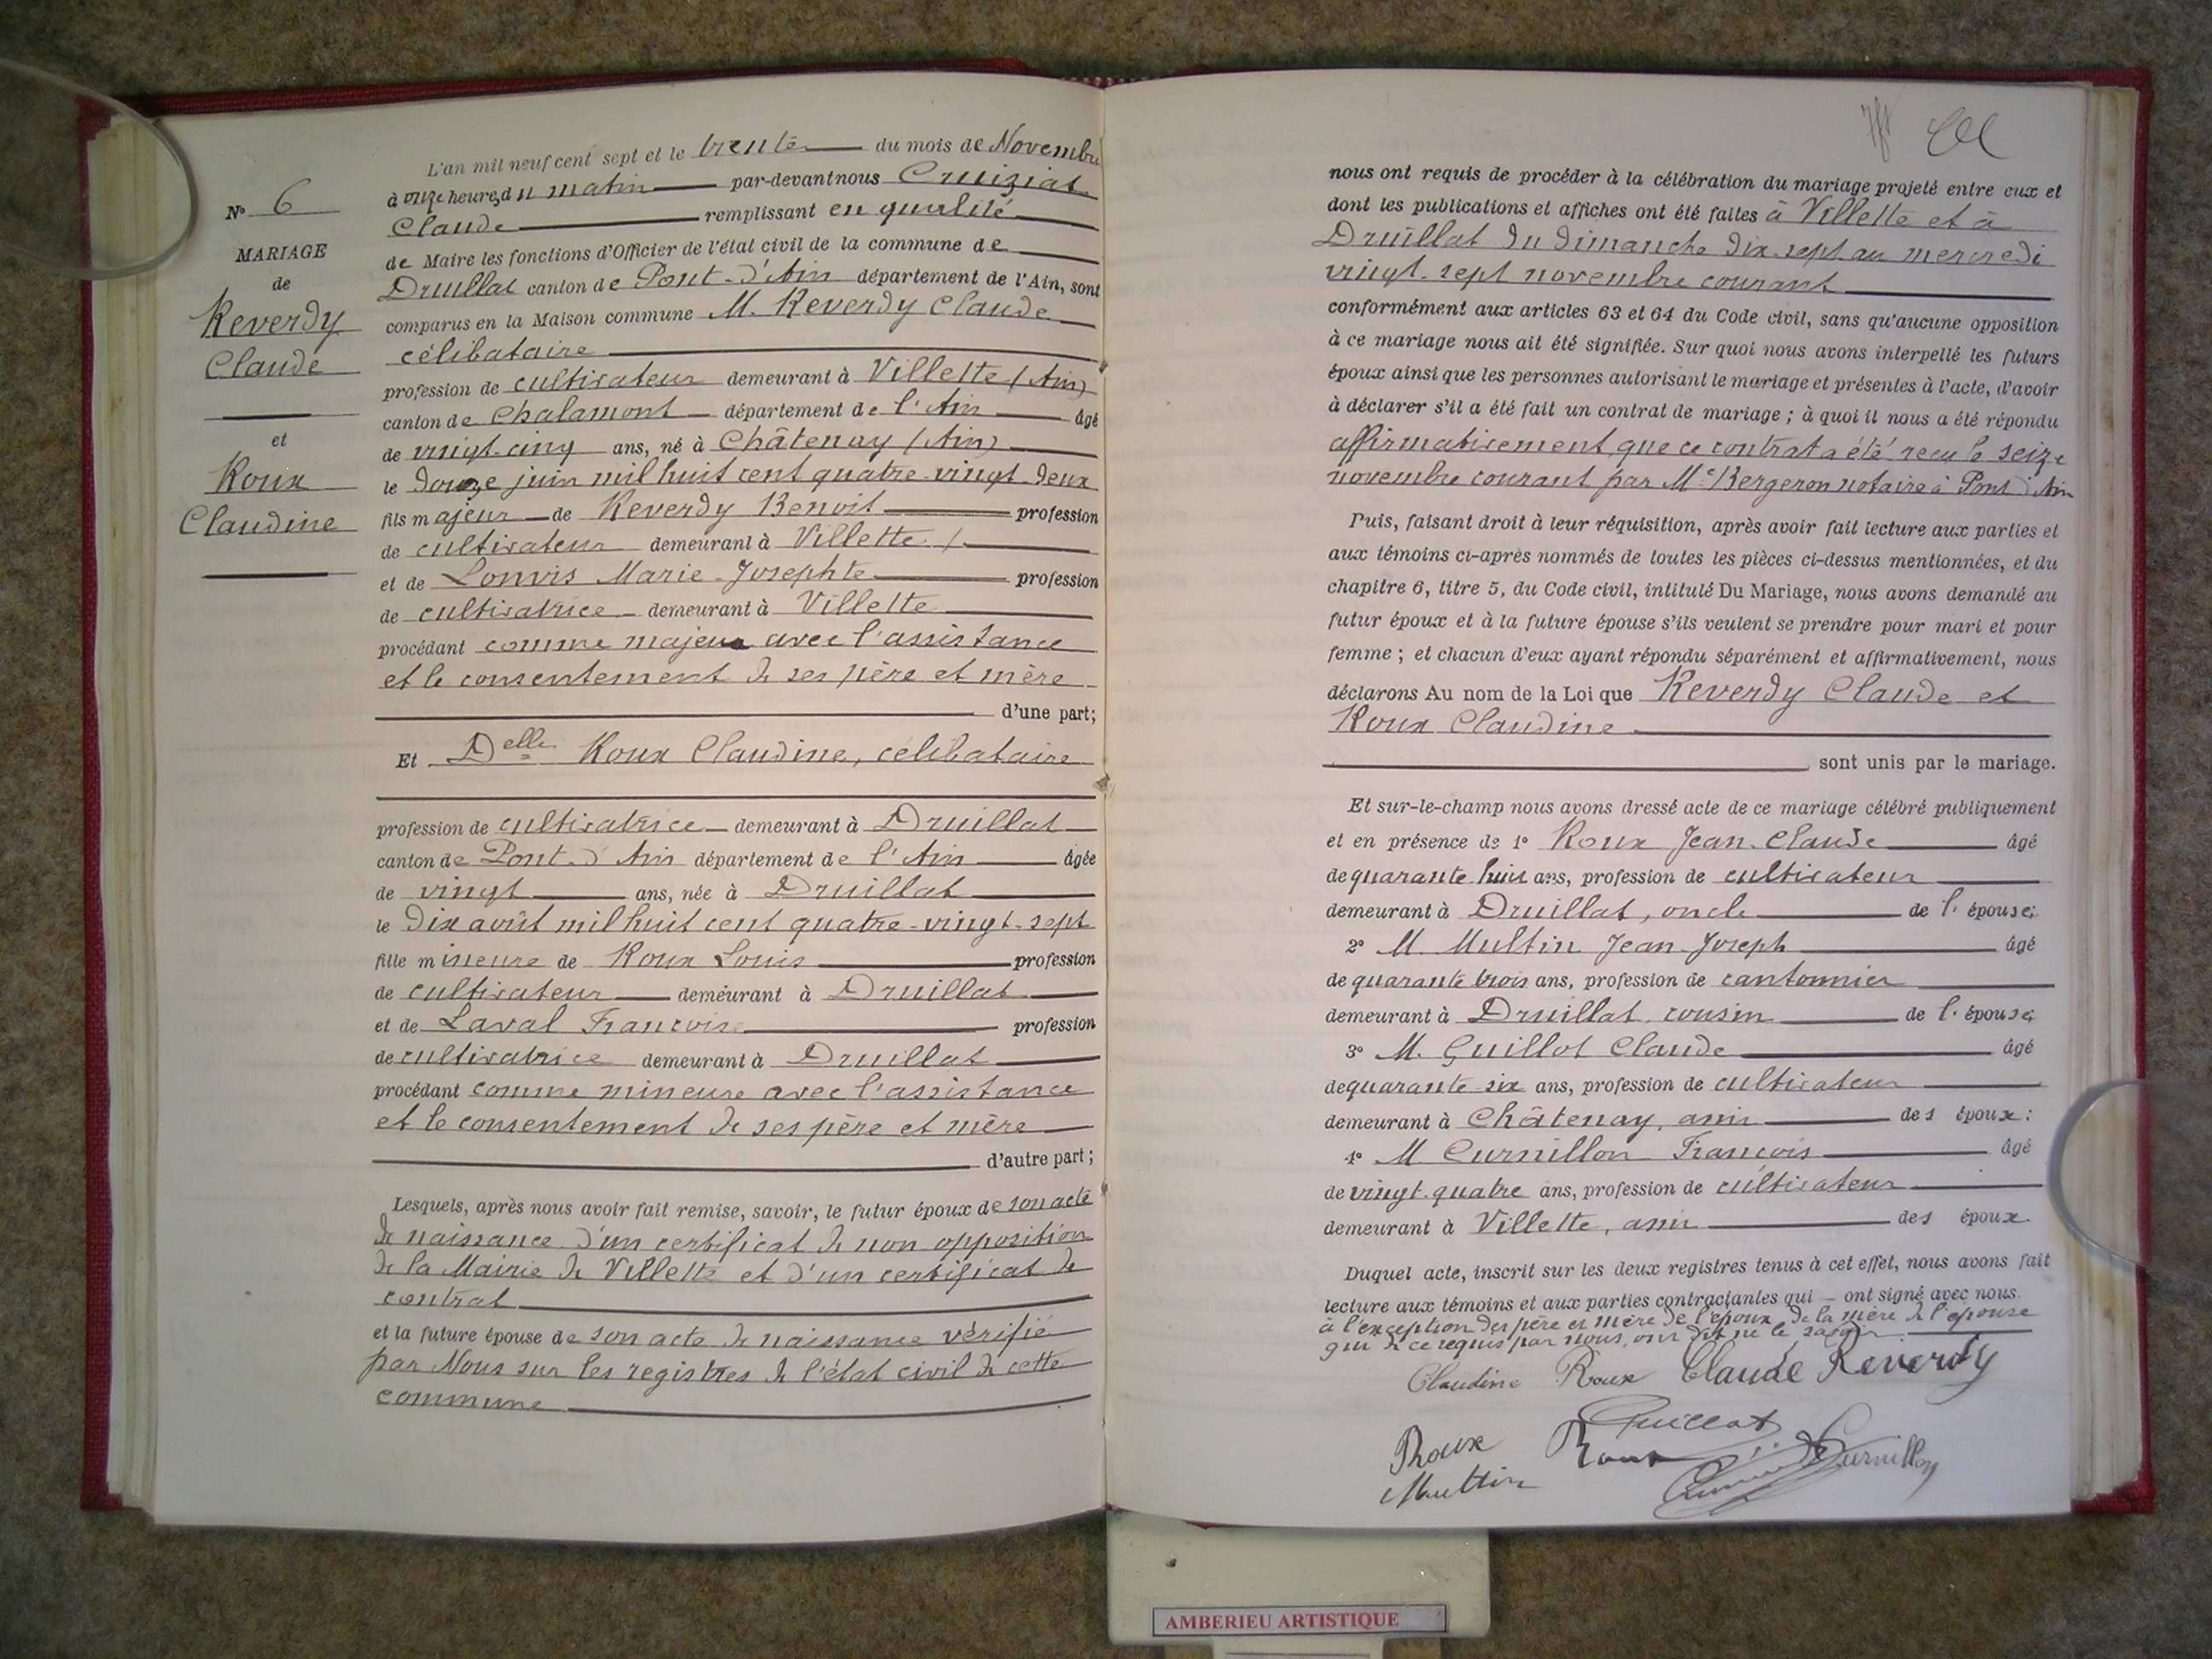 L'an mil neuf cent sept et le trente du mois de Novembre
à onze heures du matin par-devant nous Cruiziat
Claude remplissant en qualité
de Maire les fonctions d'Officier de l'état civil de la commune de
Druillat canton de Pont-d'Ain département de l'Ain, sont
comparus en la Maison commune M. Reverdy Claude
célibataire
profession de cultivateur demeurant à Villette (Ain)
canton de Chalamont département de l'Ain âgé
de vingt-cinq ans, né à Châtenay (Ain)
le douze juin mil huit cent quatre-vingt-deux
fils majeur de Reverdy Benoit profession
de cultivateur demeurant à Villette
et de Lonvis Marie-Josephte profession
de cultivatrice demeurant à Villette
procédant comme majeur avec l'assistance
et le consentement de ses père et mère
d'une part;
Et Delle Roux Claudine, célibataire
profession de cultivatrice demeurant à Druillat
canton de Pont-d'Ain département de l'Ain âgée
de vingt ans, née à Druillat
le dix août mil huit cent quatre-vingt-sept
fille mineure de Roux Louis profession
de cultivateur demeurant à Druillat
et de Laval Françoise profession
de cultivatrice demeurant à Druillat
procédant comme mineure avec l'assistance
et le consentement de ses père et mère
d'autre part;
Lesquels, après nous avoir fait remise, savoir, le futur époux de son acte
de naissance d'un certificat de non opposition
de la Mairie de Villette et d'un certificat de
contrat
et la future épouse de son acte de naissance vérifié
par Nous sur les registres de l'état civil de cette
commune
N° 6
MARIAGE
de
Reverdy
Claude
et
Roux
Claudine
nous ont requis de procéder à la célébration du mariage projeté entre eux et
dont les publications et affiches ont été faites à Villette et à
Druillat du dimanche dix-sept au mercredi
vingt-sept novembre courant
conformément aux articles 63 et 64 du Code civil, sans qu'aucune opposition
à ce mariage nous ait été signifiée. Sur quoi nous avons interpellé les futurs
époux ainsi que les personnes autorisant le mariage et présentes à l'acte, d'avoir
à déclarer s'il a été fait un contrat de mariage ; à quoi il nous a été répondu
affirmativement que ce contrat a été reçu le seize
novembre courant par Me Bergeron notaire à Pont d'Ain
Puis, faisant droit à leur réquisition, après avoir fait lecture aux parties et
aux témoins ci-après nommés de toutes les pièces ci-dessus mentionnées, et du
chapitre 6, titre 5, du Code civil, intitulé Du Mariage, nous avons demandé au
futur époux et à la future épouse s'ils veulent se prendre pour mari et pour
femme ; et chacun d'eux ayant répondu séparément et affirmativement, nous
déclarons Au nom de la Loi que Reverdy Claude et
Roux Claudine
sont unis par le mariage.
Et sur-le-champ nous avons dressé acte de ce mariage célébré publiquement
et en présence de 1° Roux Jean-Claude âgé
de quarante huit ans, profession de cultivateur
demeurant à Druillat, oncle de l'épouse;
2° M. Multin Jean-Joseph âgé
de quarante trois ans, profession de cantonnier
demeurant à Druillat, cousin de l'épouse;
3° M. Guillot Claude âgé
de quarante six ans, profession de cultivateur
demeurant à Châtenay, ami des époux;
4° M. Curnillon François âgé
de vingt-quatre ans, profession de cultivateur
demeurant à Villette, ami des époux.
Duquel acte, inscrit sur les deux registres tenus à cet effet, nous avons fait
lecture aux témoins et aux parties contractantes qui ont signé avec nous.
à l'exception des père et mère de l'époux, de la mère de l'épouse
qui de ce requis par nous, ont dit ne le savoir
Claudine Roux Claude Reverdy
Guillot
Roux Roux Curnillon
Multin
AMBERIEU ARTISTIQUE